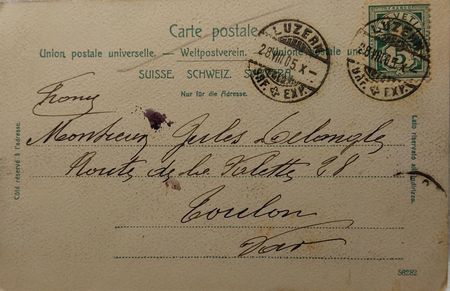 Carte postale.
Union postale universelle. — Weltpostverein. — Unione postale un
SUISSE. SCHWEIZ. S
Nur für die Adresse.
LUZERN
28.VIII.05.X–
BRF. EXP.
LUZERN
28.VIII.05
BRF. EXP.
HELVETIA
Côté réservé à l'adresse.
Lato riservato all'indirizzo.
France
Monsieur Jules Delangle
Route de la Valette 28
Toulon
Var
56282